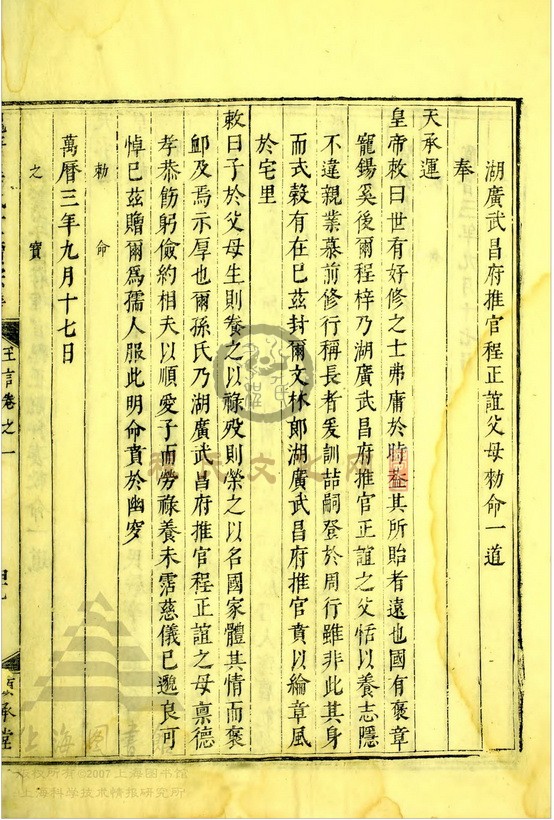 湖廣武昌府推官程正誼父母勑命一道
奉
天承運
皇帝敕曰世有好修之士弗庸於時葢其所貽者遠也國有褒章
寵錫奚後爾程梓乃湖廣武昌府推官正誼之父恬以養志隱
不違親業慕前修行稱長者爰訓喆嗣登於周行雖非此其身
而式榖有在巳茲封爾文林郎湖廣武昌府推官賁以綸章風
於宅里
敕曰子於父母生則養之以祿歿則榮之以名國家體其情而褒
䘏及焉示厚也爾孫氏乃湖廣武昌府推官程正誼之母禀德
孝恭飭躬儉約相夫以順愛子而勞祿養未霑慈儀已邈良可
悼巳茲贈爾為孺人服此明命賁於幽穸
勑命
萬曆三年九月十七日
之寶
王言卷之一
承堂
上海图书
版权所有©2007上海图书馆
上海科学技术情报研究所